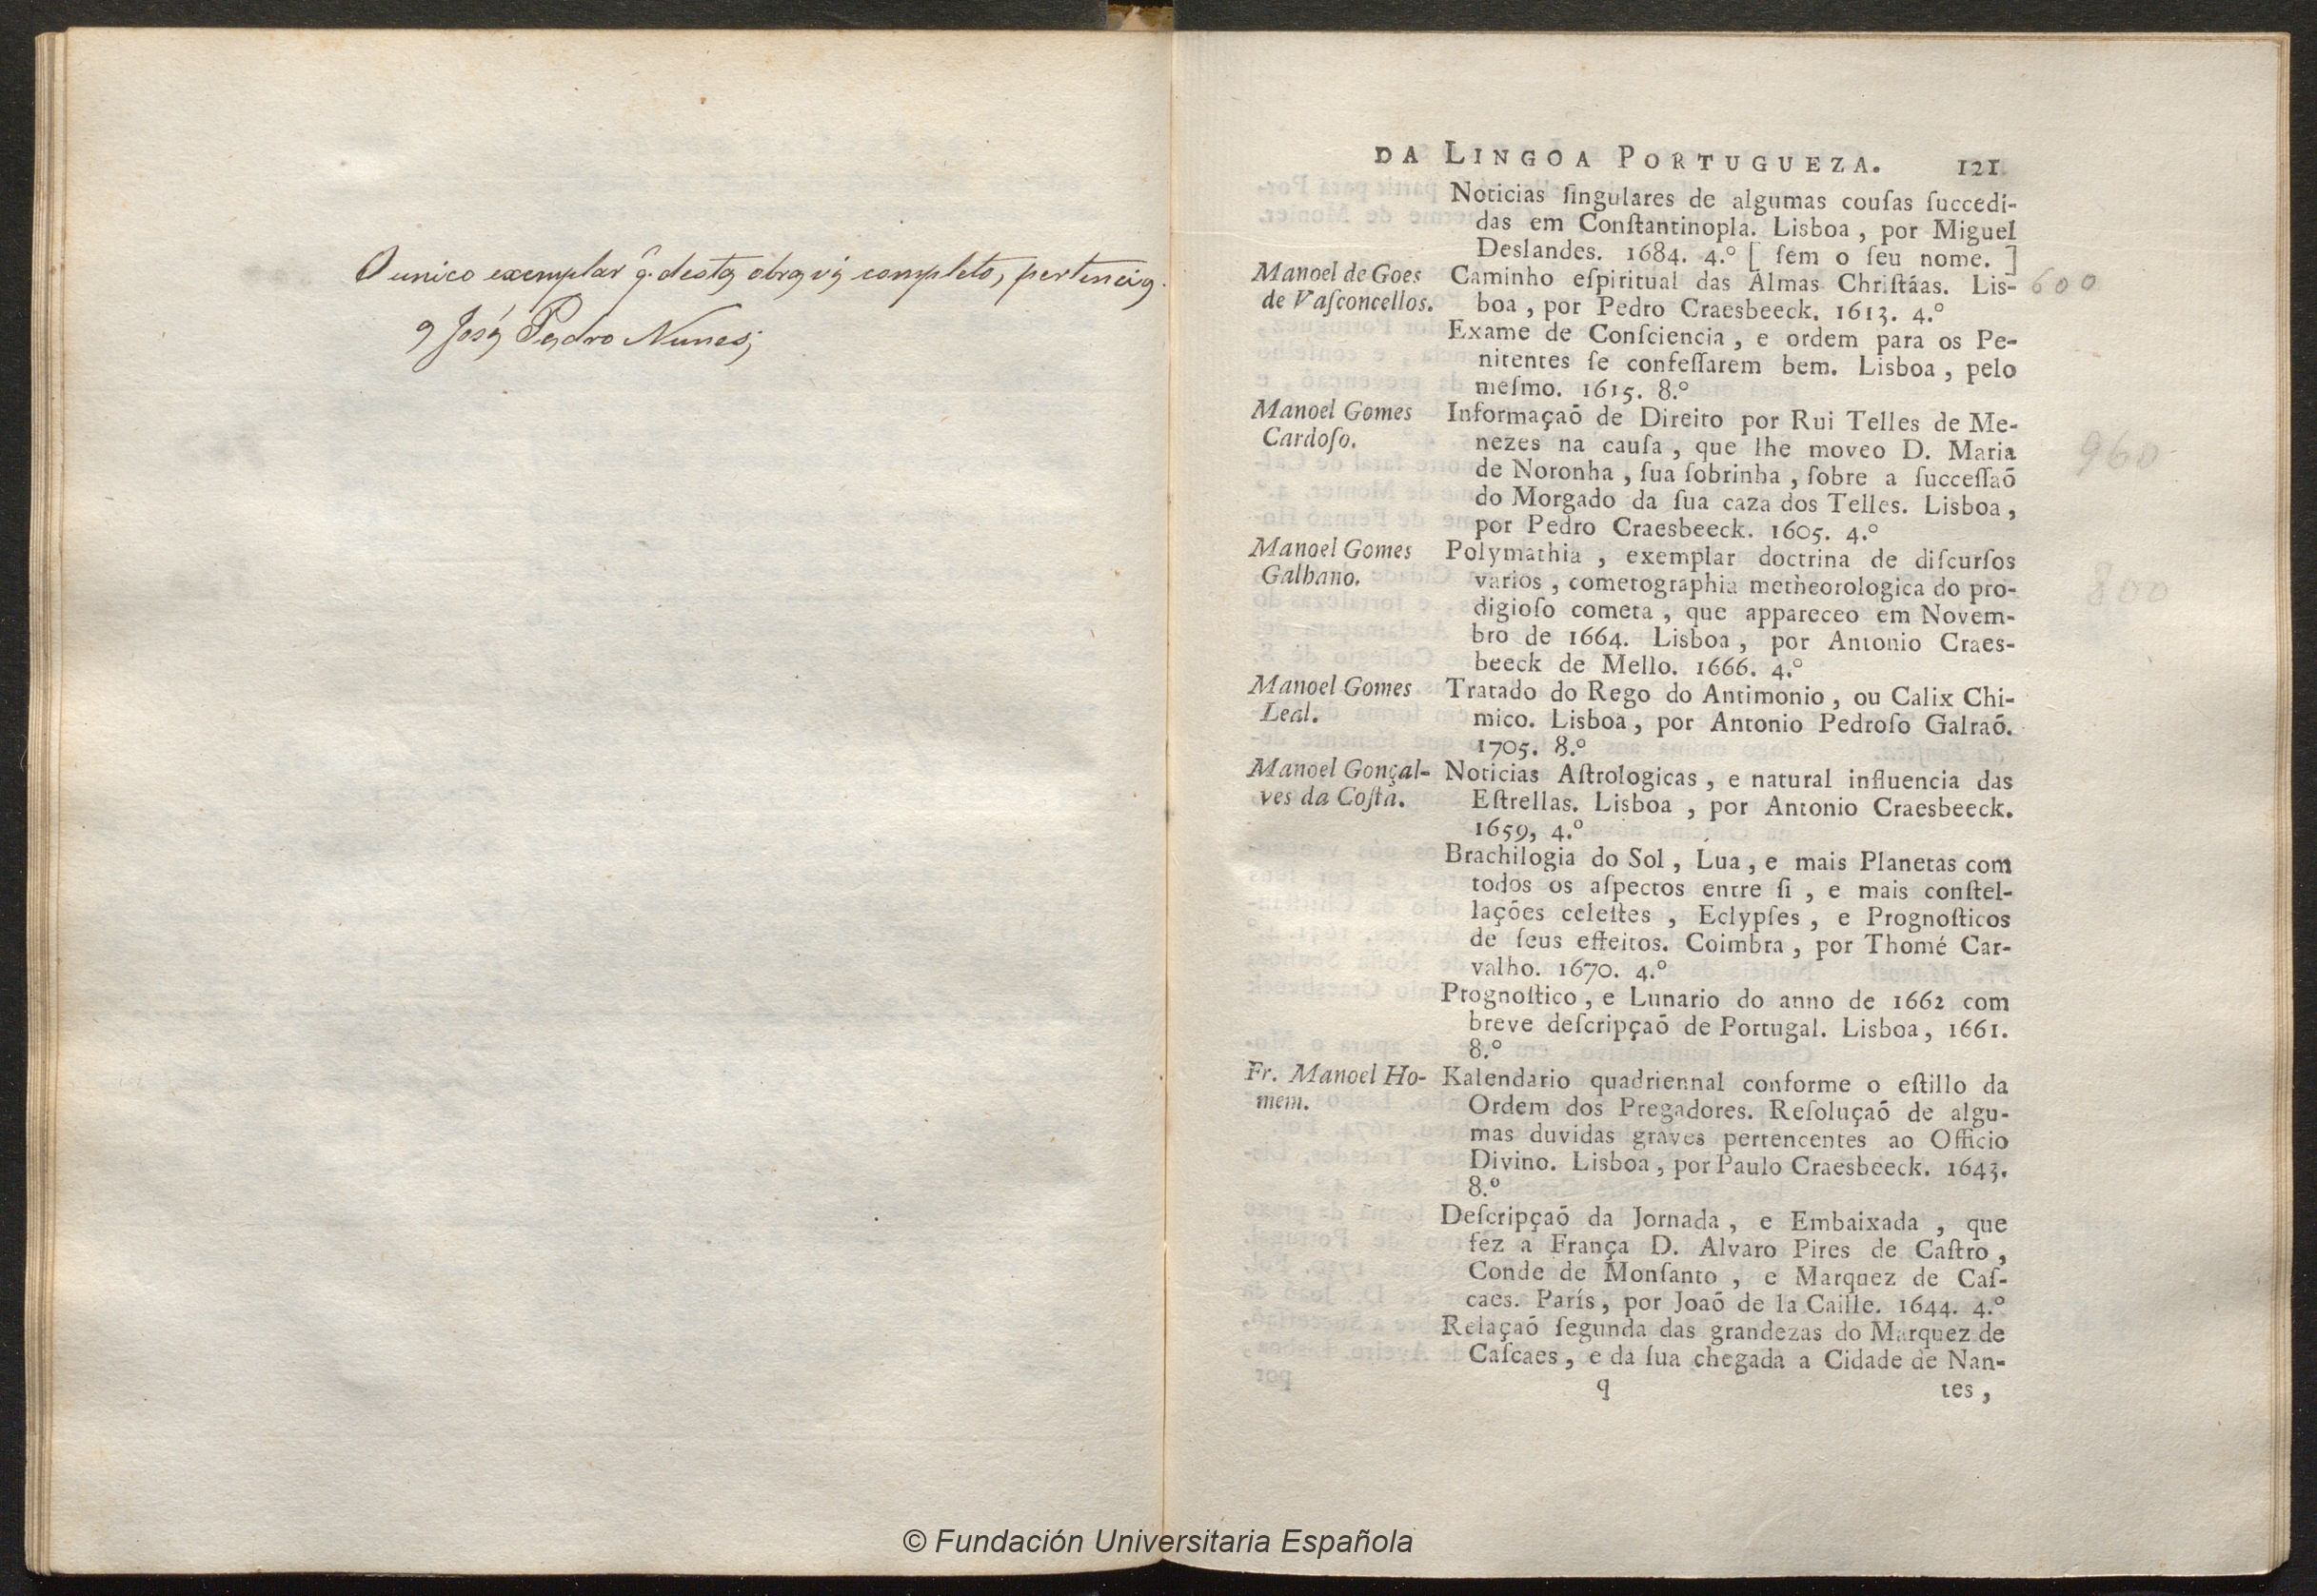 O unico exemplar q̃ desta obra vi completo, pertencia
a José Pedro Nunes;
DA LINGOA PORTUGUEZA. 121
Noticias ſingulares de algumas couſas ſuccedi-
das em Conſtantinopla. Lisboa , por Miguel
Deslandes. 1684. 4.º [ ſem o ſeu nome. ]
Manoel de Goes Caminho eſpiritual das Almas Chriſtáas. Lis- 600
de Vaſconcellos. boa , por Pedro Craesbeeck. 1613. 4.º
Exame de Conſciencia , e ordem para os Pe-
nitentes ſe confeſſarem bem. Lisboa , pelo
meſmo. 1615. 8.º
Manoel Gomes Informaçaõ de Direito por Rui Telles de Me-
Cardoſo. nezes na cauſa , que lhe moveo D. Maria 960
de Noronha , ſua ſobrinha , ſobre a ſucceſſaõ
do Morgado da ſua caza dos Telles. Lisboa ,
por Pedro Craesbeeck. 1605. 4.º
Manoel Gomes Polymathia , exemplar doctrina de diſcurſos
Galhano. varios , cometographia metheorologica do pro- 800
digioſo cometa , que appareceo em Novem-
bro de 1664. Lisboa , por Antonio Craes-
beeck de Mello. 1666. 4.º
Manoel Gomes Tratado do Rego do Antimonio , ou Calix Chi-
Leal. mico. Lisboa , por Antonio Pedroſo Galraõ.
1705. 8.º
Manoel Gonçal- Noticias Aſtrologicas , e natural influencia das
ves da Coſta. Eſtrellas. Lisboa , por Antonio Craesbeeck.
1659, 4.º
Brachilogia do Sol , Lua , e mais Planetas com
todos os aſpectos entre ſi , e mais conſtel-
lações celeſtes , Eclypſes , e Prognoſticos
de ſeus effeitos. Coimbra , por Thomé Car-
valho. 1670. 4.º
Prognoſtico , e Lunario do anno de 1662 com
breve deſcripçaõ de Portugal. Lisboa , 1661.
8.º
Fr. Manoel Ho- Kalendario quadriennal conforme o eſtillo da
mem. Ordem dos Pregadores. Reſoluçaõ de algu-
mas duvidas graves pertencentes ao Officio
Divino. Lisboa , por Paulo Craesbeeck. 1643.
8.º
Deſcripçaõ da Jornada , e Embaixada , que
fez a França D. Alvaro Pires de Caſtro ,
Conde de Monſanto , e Marquez de Caſ-
caes. París , por Joaõ de la Caille. 1644. 4.º
Relaçaõ ſegunda das grandezas do Marquez de
Caſcaes , e da ſua chegada a Cidade de Nan-
q tes ,
© Fundación Universitaria Española